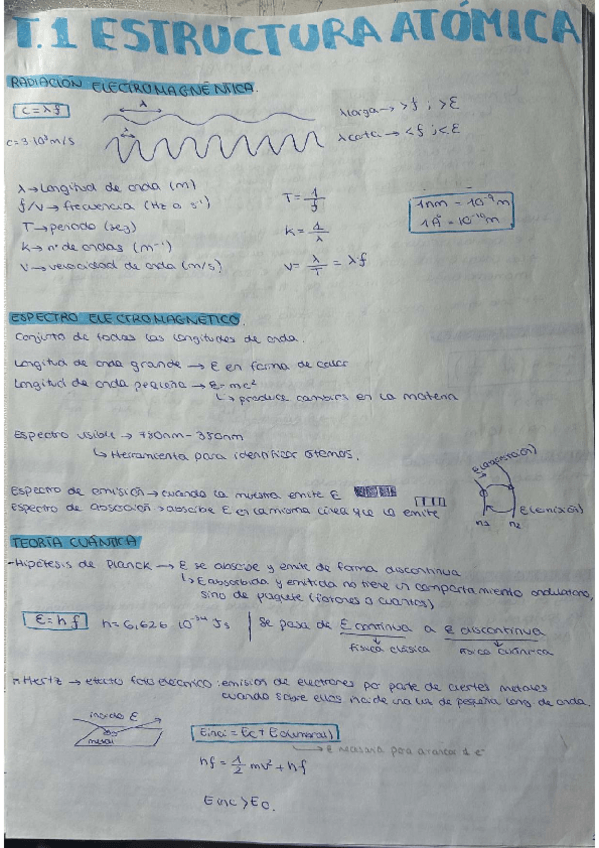 T.1 ESTRUCTURA ATÓMICA
RADIACIÓN ELECTROMAGNÉTICA.
c = λ f
c = 3·10⁸ m/s
λ
λ
λ larga → > f ; > E
λ corta → < f ; < E
λ → longitud de onda (m)
f/ν → frecuencia (Hz o s⁻¹)
T → periodo (seg)
K → nº de ondas (m⁻¹)
V → velocidad de onda (m/s)
T = 1/f
K = 1/λ
V = λ/T = λ f
1nm = 10⁻⁹ m
1Å = 10⁻¹⁰ m
ESPECTRO ELECTROMAGNÉTICO.
Conjunto de todas las longitudes de onda.
Longitud de onda grande → E en forma de calor
Longitud de onda pequeña → E = mc²
↳ produce cambios en la materia
Espectro visible → 780nm - 350nm
↳ Herramienta para identificar átomos.
Espectro de emisión → cuando la muestra emite E
Espectro de absorción → absorbe E en la misma línea que la emite
E(absorción)
E(emisión)
n₁ n₂
TEORÍA CUÁNTICA
- Hipótesis de Planck → E se absorbe y emite de forma discontinua
↳ E absorbida y emitida no tiene un comportamiento ondulatorio,
sino de paquete (fotones o cuantos)
E = h f
h = 6,626 · 10⁻³⁴ J s
Se pasa de E continua a E discontinua
física clásica
física cuántica
Hertz → efecto fotoeléctrico: emisión de electrones por parte de ciertos metales
cuando sobre ellos incide una luz de pequeña long de onda.
incide E
metal
Einci = Ec + E0(umbral)
→ E necesaria para arrancar 1 e⁻
hf = 1/2 mv² + hf
E inc > E0.